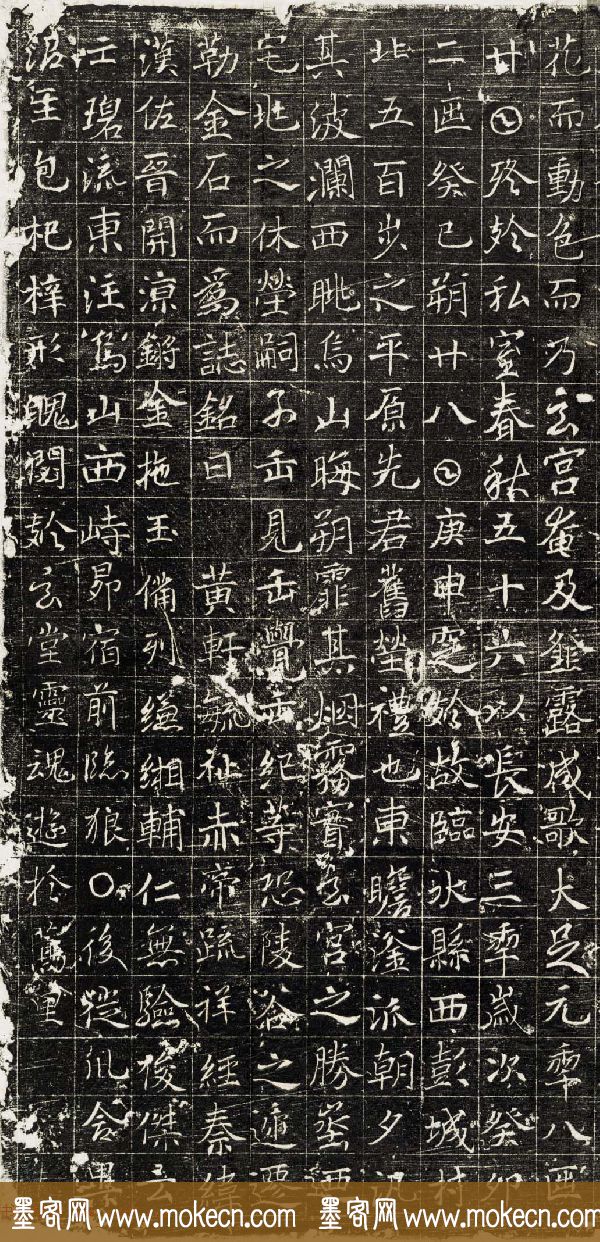 花而動色而乃玄宮奄及薤露咸歌大足元𠡦八𠥱
廿𡆠終於私室春秋五十六以長安三𠡦歲次癸卯
二𠥱癸巳朔廿八𡆠庚申窆於故臨水縣西彭城村
北五百步之平原先君舊塋禮也東瞻滏派朝夕汎
其波瀾西眺烏山晦朔霏其烟霧實玄宮之勝
宅地之休塋嗣子見覺紀等恐陵谷之遞遷
勒金石而爲誌銘曰 黃軒毓祉赤帝疏祥經秦緯
漢佐晉開涼鏘金拖玉備列縑緗輔仁無驗俊傑云
亡碧流東注烏山西峙昴宿前臨狼〇後從
包杞梓形魄閟於玄堂靈魂遊於蒿里
墨客网 www.mokecn.com 墨客网 www.mokecn.com